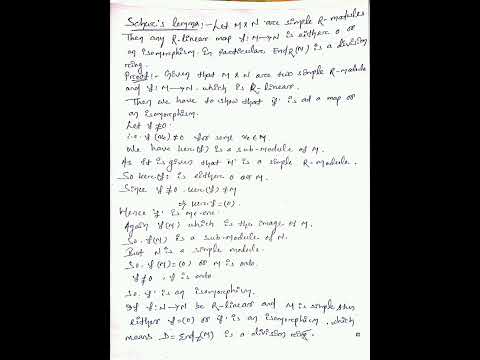 Schur's lemma:- Let M & N are simple R-modules
Then any R-linear map f: M→N is either 0 or
an isomorphism. In particular End_R(M) is a division
ring.
Proof:- Given that M & N are two simple R-module
and f: M→N. which is R-linear.
Then we have to show that f is a map or
an isomorphism.
Let f≠0.
i.e. f(m)≠0 for some m∈M.
We have ker(f) is a sub-module of M.
As it is given that M is a simple R-module.
So ker(f) is either 0 or M.
Since f≠0. ker(f)≠M
⇒ ker f=(0).
Hence f is one-one.
Again f(M) which is the image of M.
So f(M) is a sub-module of N.
But N is a simple module.
So f(M)=(0) or M is onto.
f≠0 f is onto
So f is an isomorphism.
If f: N→N be R-linear and M is simple then
either f=(0) or f is an isomorphism, which
means D=End_R(M) is a division ring.